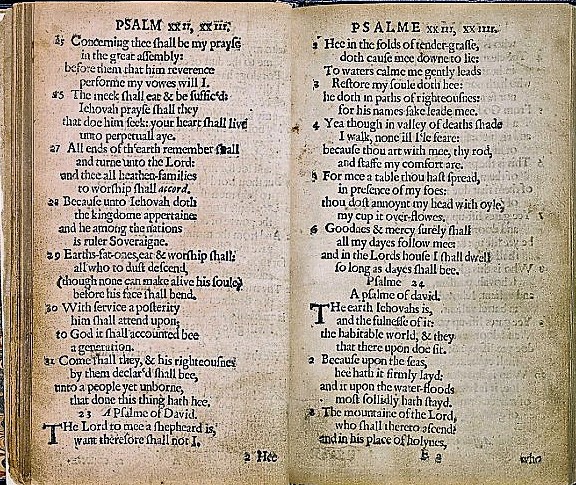 PSALM xxii, xxiii.
25 Concerning thee shall be my prayse
in the great assembly:
before them that him reverence
performe my vowes will I.
26 The meek shall eat & be suffic'd:
Iehovah prayse shall they
that doe him seek: your heart shall live
unto perpetuall aye.
27 All ends of th'earth remember shall
and turne unto the Lord:
and thee all heathen-families
to worship shall accord.
28 Because unto Iehovah doth
the kingdome appertaine:
and he among the nations
is ruler Soveraigne.
29 Earths-fat-ones, eat & worship shall:
all who to dust descend,
(though none can make alive his soule)
before his face shall bend.
30 With service a posterity
him shall attend upon;
to God it shall accounted bee
a generation.
31 Come shall they, & his righteousnes
by them declar'd shall bee,
unto a people yet unborne,
that done this thing hath hee.
23 A Psalme of David.
The Lord to mee a shepheard is,
want therefore shall not I.
2 Hee
PSALME xxiii, xxiiii.
2 Hee in the folds of tender-grasse,
doth cause mee downe to lie:
To waters calme me gently leads
3 Restore my soule doth hee:
he doth in paths of righteousnes:
for his names sake leade mee.
4 Yea though in valley of deaths shade
I walk, none ill I'le feare:
because thou art with mee, thy rod,
and staffe my comfort are.
5 For mee a table thou hast spread,
in presence of my foes:
thou dost annoynt my head with oyle,
my cup it over-flowes.
6 Goodnes & mercy surely shall
all my dayes follow mee:
and in the Lords house I shall dwell
so long as dayes shall bee.
Psalme 24
A psalme of david.
The earth Iehovahs is,
and the fulnesse of it:
the habitable world, & they
that there upon doe sit.
2 Because upon the seas,
hee hath it firmly layd:
and it upon the water-floods
most sollidly hath stayd.
3 The mountaine of the Lord,
who shall thereto ascend?
and in his place of holynes,
E 2
who